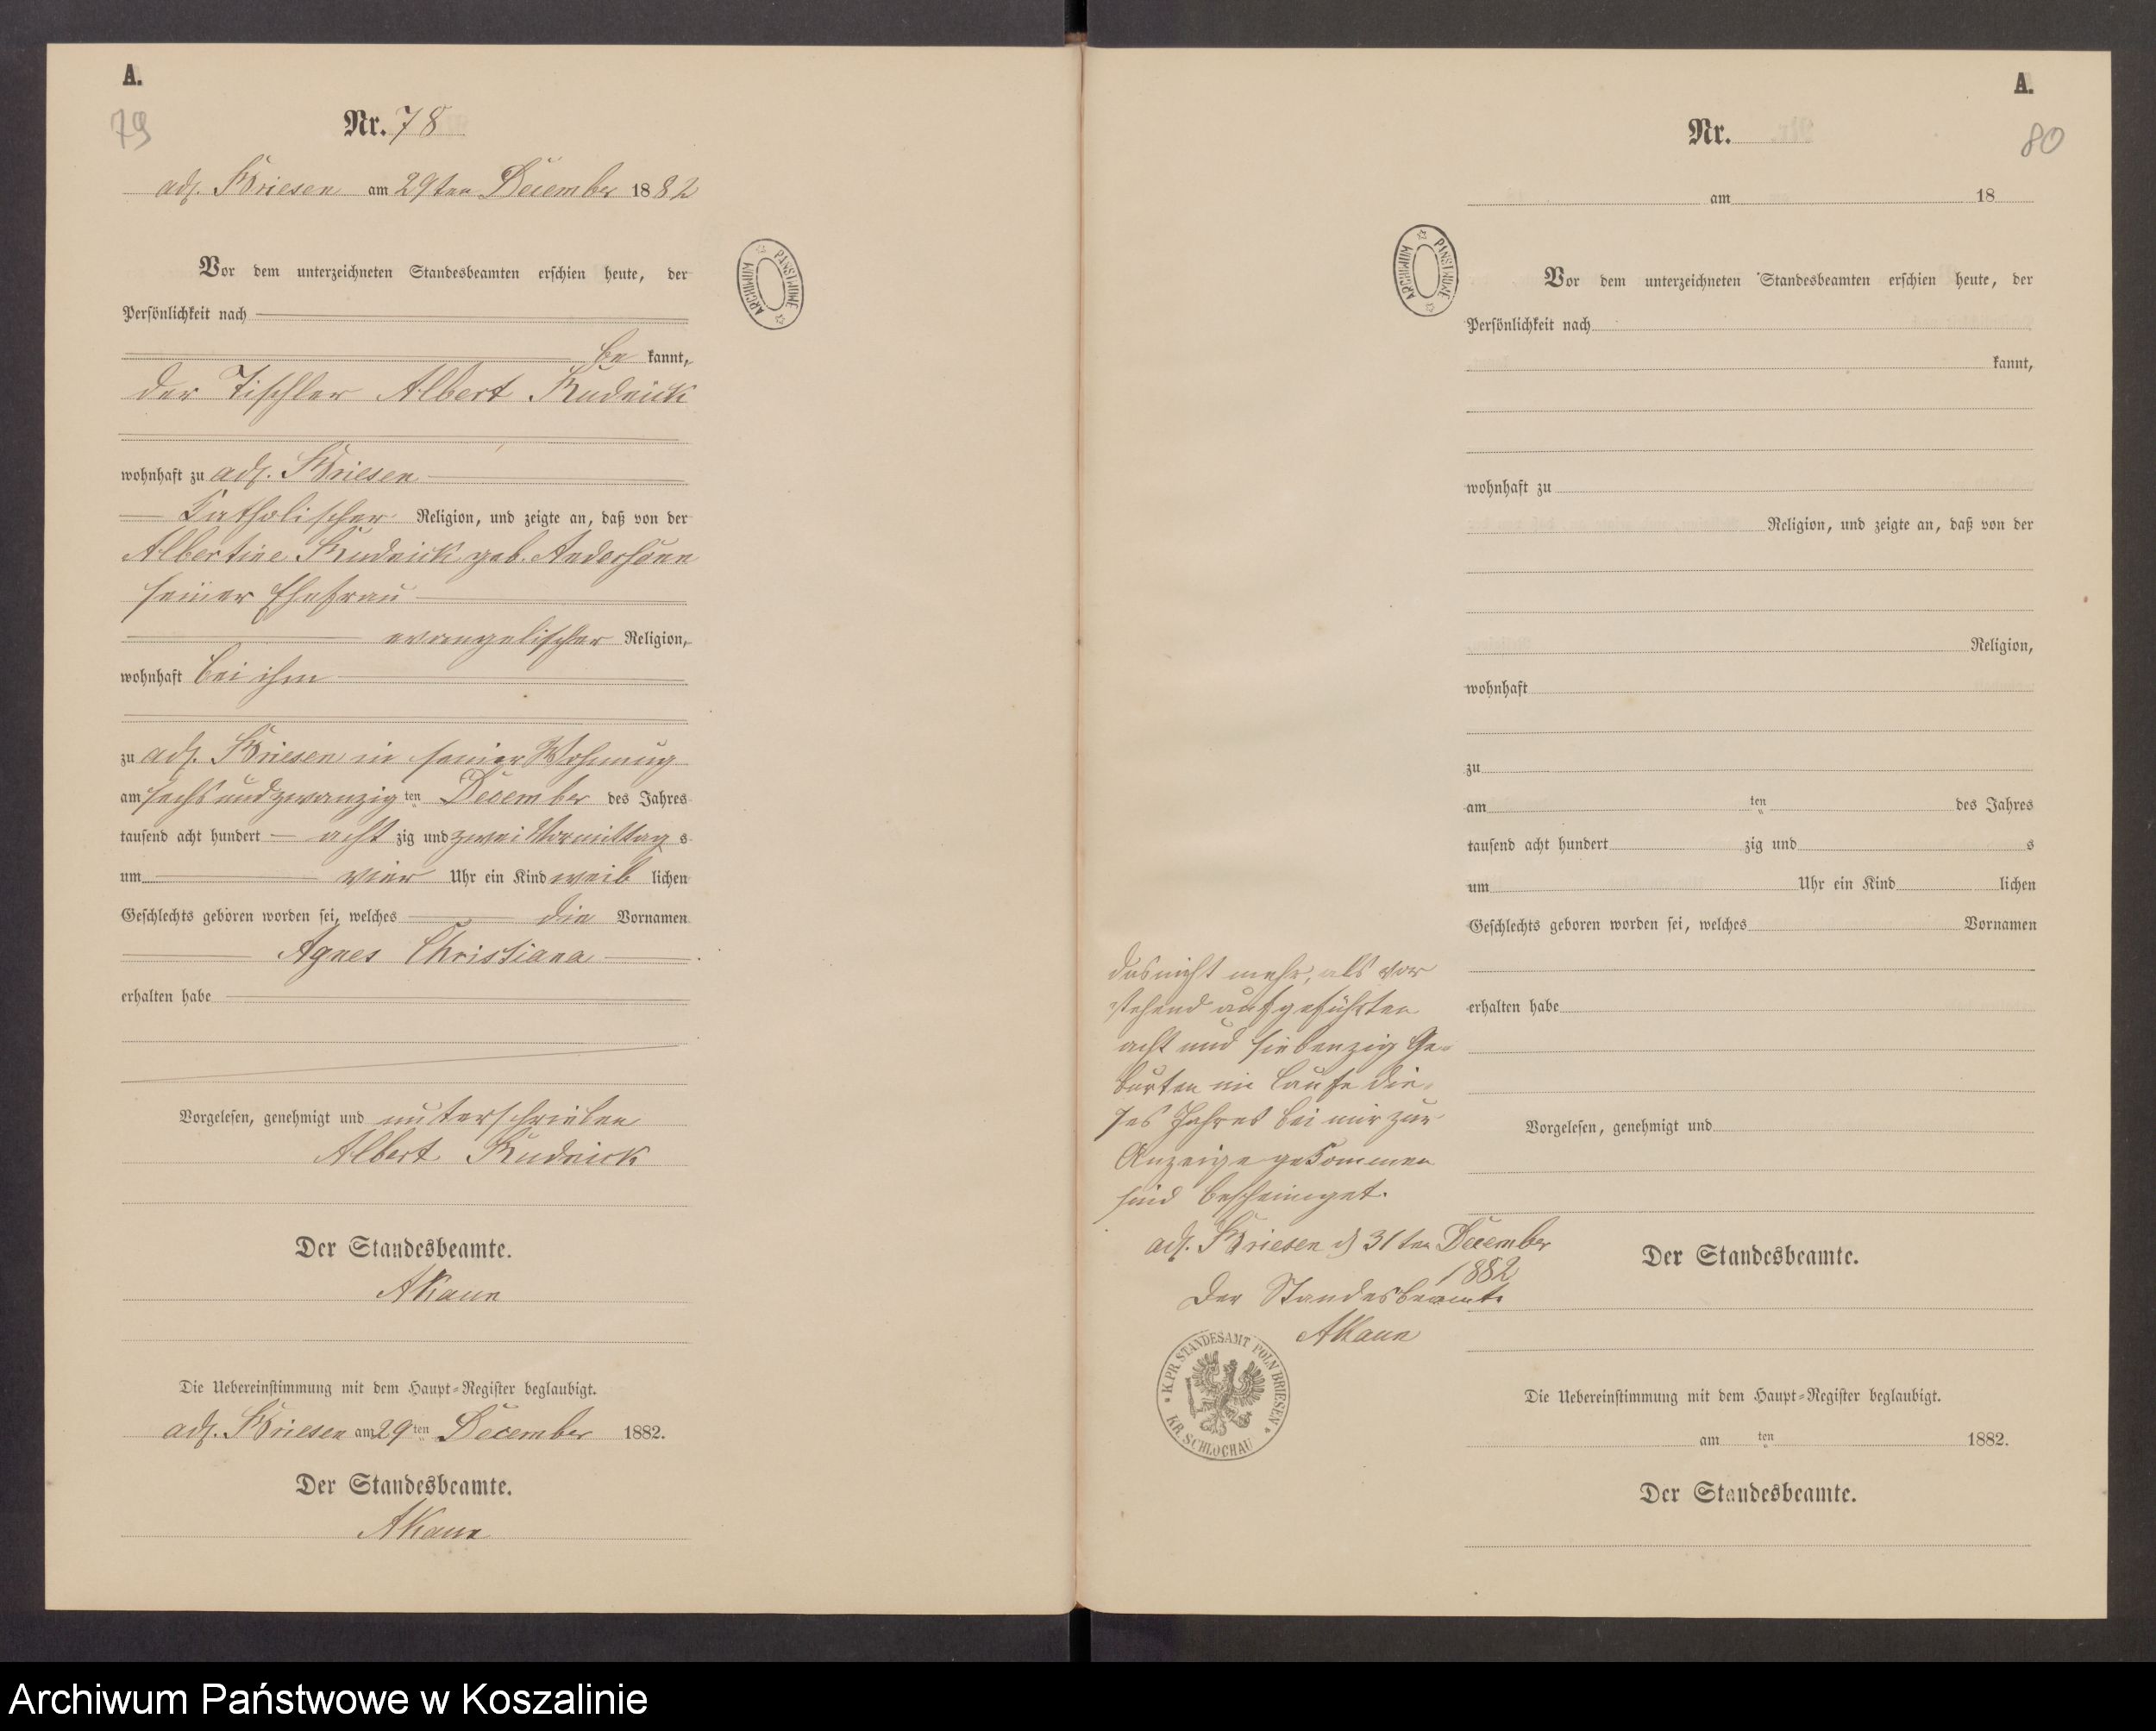 A.
79
Nr. 78
adl. Briesen am 29ten December 1882
Vor dem unterzeichneten Standesbeamten erschien heute, der
Persönlichkeit nach
be kannt,
der Tischler Albert Rudnick
wohnhaft zu adl. Briesen
katholischer Religion, und zeigte an, daß von der
Albertine Rudnick geb.
seiner Ehefrau
evangelischer Religion,
wohnhaft bei ihm
zu adl. Briesen in seiner Wohnung
am sechsundzwanzig ten December des Jahres
tausend acht hundert acht zig und zwei Vormittag s
um vier Uhr ein Kind weib lichen
Geschlechts geboren worden sei, welches die Vornamen
Agnes Christiana
erhalten habe
Vorgelesen, genehmigt und unterschrieben
Albert Rudnick
Der Standesbeamte.
Die Uebereinstimmung mit dem Haupt-Register beglaubigt.
adl. Briesen am 29 ten December 1882.
Der Standesbeamte.
ARCHIWUM PAŃSTWOWE
A.
80
Nr.
am 18
ARCHIWUM PAŃSTWOWE
Vor dem unterzeichneten Standesbeamten erschien heute, der
Persönlichkeit nach
kannt,
wohnhaft zu
Religion, und zeigte an, daß von der
Religion,
wohnhaft
zu
am ten des Jahres
tausend acht hundert zig und s
um Uhr ein Kind lichen
Geschlechts geboren worden sei, welches Vornamen
erhalten habe
Vorgelesen, genehmigt und
Der Standesbeamte.
Die Uebereinstimmung mit dem Haupt-Register beglaubigt.
am ten 1882.
Der Standesbeamte.
das nicht mehr, als vor
stehend aufgeführten
acht und siebenzig Ge-
burten im Laufe die-
ses Jahres bei mir zur
Anzeige gekommen
sind bescheiniget.
adl. Briesen d 31ten December
1882
Der Standesbeamte
K. PR. STANDESAMT POLN. BRIESEN
KR. SCHLOCHAU
Archiwum Państwowe w Koszalinie